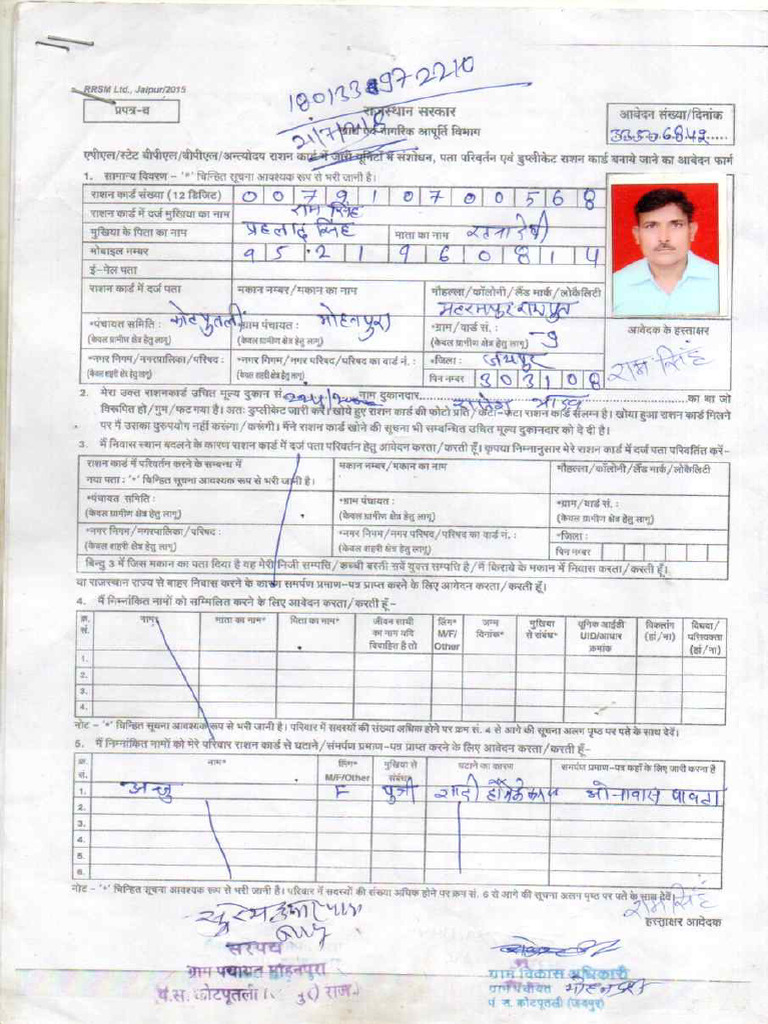 180133 972210
21/7/18
RRSM Ltd., Jaipur/2015
प्रपत्र-ब
राजस्थान सरकार
खाद्य एवं नागरिक आपूर्ति विभाग
आवेदन संख्या/दिनांक
एपीएल/स्टेट बीपीएल/बीपीएल/अन्त्योदय राशन कार्ड में जारी यूनिटों में संशोधन, पता परिवर्तन एवं डुप्लीकेट राशन कार्ड बनाये जाने का आवेदन फार्म
1. सामान्य विवरण – '*' चिन्हित सूचना आवश्यक रूप से भरी जानी है।
राशन कार्ड संख्या (12 डिजिट) 0 0 7 9 1 0 7 0 0 5 6 8
राशन कार्ड में दर्ज मुखिया का नाम राम सिंह
मुखिया के पिता का नाम प्रहलाद सिंह माता का नाम
मोबाइल नम्बर 9 5 2 1 9 6 0 8 1 4
ई-मेल पता
राशन कार्ड में दर्ज पता मकान नम्बर/मकान का नाम मौहल्ला/कॉलोनी/लैंड मार्क/लोकैलिटी
*पंचायत समिति : कोटपुतली *ग्राम पंचायत : मोहनपुरा *ग्राम/वार्ड सं. : 9
(केवल ग्रामीण क्षेत्र हेतु लागू) (केवल ग्रामीण क्षेत्र हेतु लागू) (केवल ग्रामीण क्षेत्र हेतु लागू)
आवेदक के हस्ताक्षर
राम सिंह
*नगर निगम/नगरपालिका/परिषद : *नगर निगम/नगर परिषद/परिषद का वार्ड नं. : *जिला : जयपुर
(केवल शहरी क्षेत्र हेतु लागू) (केवल शहरी क्षेत्र हेतु लागू) पिन नम्बर 3 0 3 1 0 8
2. मेरा उक्त राशनकार्ड उचित मूल्य दुकान सं. नाम दुकानदार का था जो
विरूपित हो/गुम/फट गया है। अतः डुप्लीकेट जारी करें। खोये हुए राशन कार्ड की फोटो प्रति/कटा-फटा राशन कार्ड संलग्न है। खोया हुआ राशन कार्ड मिलने
पर मैं उसका दुरुपयोग नहीं करूंगा/करूंगी। मैंने राशन कार्ड खोने की सूचना भी सम्बन्धित उचित मूल्य दुकानदार को दे दी है।
3. मैं निवास स्थान बदलने के कारण राशन कार्ड में दर्ज पता परिवर्तन हेतु आवेदन करता/करती हूँ। कृपया निम्नानुसार मेरे राशन कार्ड में दर्ज पता परिवर्तित करें–
राशन कार्ड में परिवर्तन करने के सम्बन्ध में मकान नम्बर/मकान का नाम मौहल्ला/कॉलोनी/लैंड मार्क/लोकैलिटी
नया पता : '*' चिन्हित सूचना आवश्यक रूप से भरी जानी है।
*पंचायत समिति : *ग्राम पंचायत : *ग्राम/वार्ड सं. :
(केवल ग्रामीण क्षेत्र हेतु लागू) (केवल ग्रामीण क्षेत्र हेतु लागू) (केवल ग्रामीण क्षेत्र हेतु लागू)
*नगर निगम/नगरपालिका/परिषद : *नगर निगम/नगर परिषद/परिषद का वार्ड नं. : *जिला :
(केवल शहरी क्षेत्र हेतु लागू) (केवल शहरी क्षेत्र हेतु लागू) पिन नम्बर
बिन्दु 3 में जिस मकान का पता दिया है वह मेरी निजी सम्पत्ति/कच्ची बस्ती सर्वे युक्त सम्पत्ति है/मैं किराये के मकान में निवास करता/करती हूँ।
या राजस्थान राज्य से बाहर निवास करने के कारण समर्पण प्रमाण-पत्र प्राप्त करने के लिए आवेदन करता/करती हूँ।
4. मैं निम्नांकित नामों को सम्मिलित करने के लिए आवेदन करता/करती हूँ–
क्र. सं. नाम* माता का नाम* पिता का नाम* जीवन साथी का नाम यदि विवाहित है तो लिंग* M/F/Other जन्म दिनांक* मुखिया से संबंध* यूनिक आईडी UID/आधार क्रमांक विकलांग (हां/ना) विधवा/परित्यक्ता (हां/ना)
1.
2.
3.
4.
नोट – '*' चिन्हित सूचना आवश्यक रूप से भरी जानी है। परिवार में सदस्यों की संख्या अधिक होने पर क्रम सं. 4 से आगे की सूचना अलग पृष्ठ पर पते के साथ देवें।
5. मैं निम्नांकित नामों को मेरे परिवार राशन कार्ड से घटाने/समर्पण प्रमाण-पत्र प्राप्त करने के लिए आवेदन करता/करती हूँ–
क्र. सं. नाम* लिंग* M/F/Other मुखिया से संबंध घटाने का कारण समर्पण प्रमाण-पत्र कहाँ के लिए जारी करना है
1. अन्जु F पुत्री शादी होने के कारण पावटा
2.
3.
4.
5.
6.
नोट – '*' चिन्हित सूचना आवश्यक रूप से भरी जानी है। परिवार में सदस्यों की संख्या अधिक होने पर क्रम सं. 6 से आगे की सूचना अलग पृष्ठ पर पते के साथ देवें।
राम सिंह
हस्ताक्षर आवेदक
सरपंच
ग्राम पंचायत मोहनपुरा
पं.स. कोटपूतली राज.
ग्राम विकास अधिकारी
ग्राम पंचायत मोहनपुरा
पं. स. कोटपूतली (जयपुर)